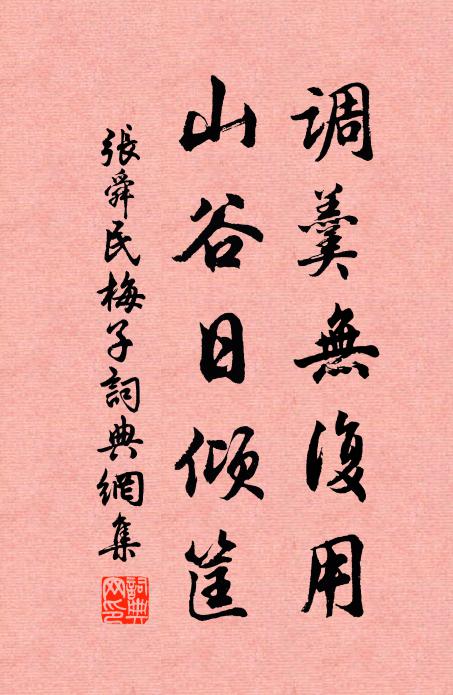 調羹無復用
山谷日傾筐
張舜民梅子詞典網集
詞典網印